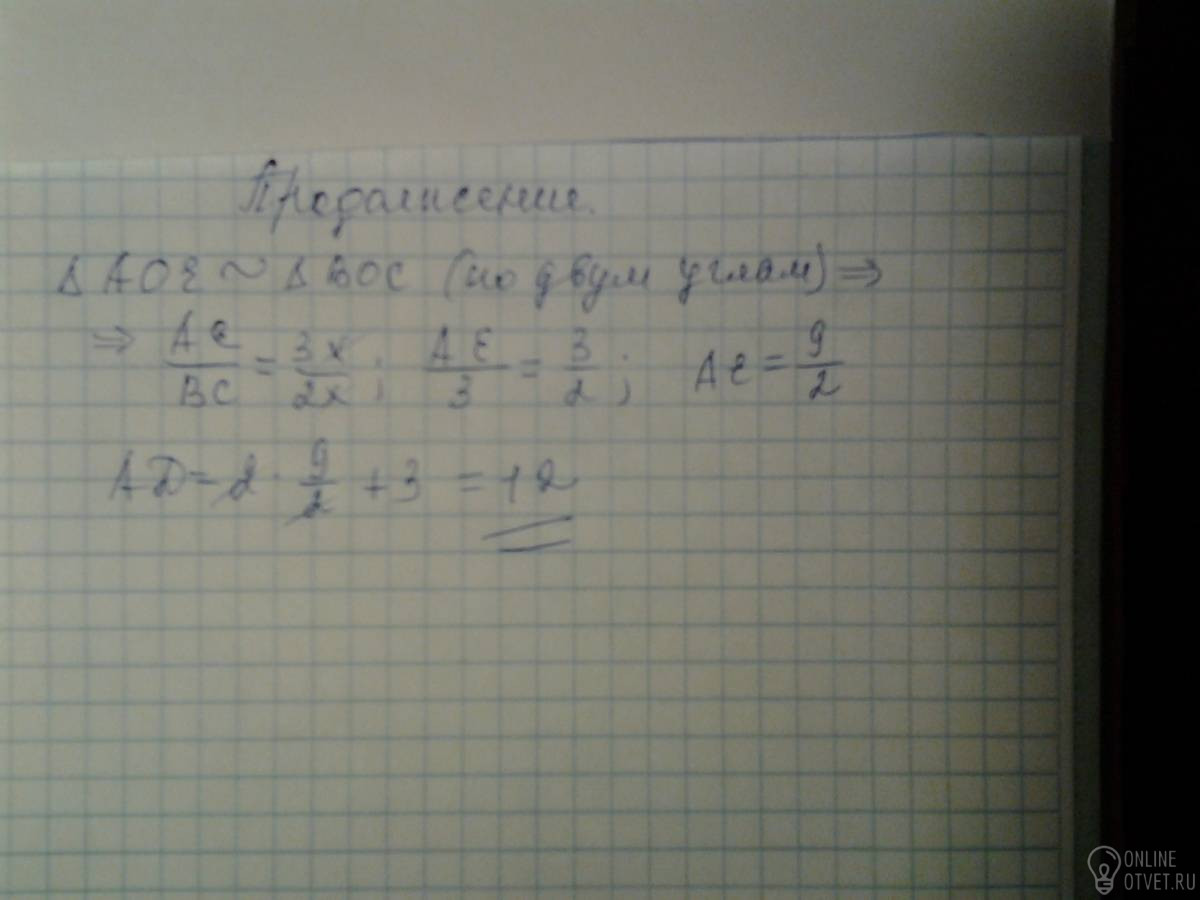 Продолжение.
Δ AOE ~ Δ BOC (по двум углам) ⇒
⇒ AE/BC = 3x/2x; AE/3 = 3/2; AE = 9/2
AD = 2 · 9/2 + 3 = 12
ONLINE
OTVET.RU